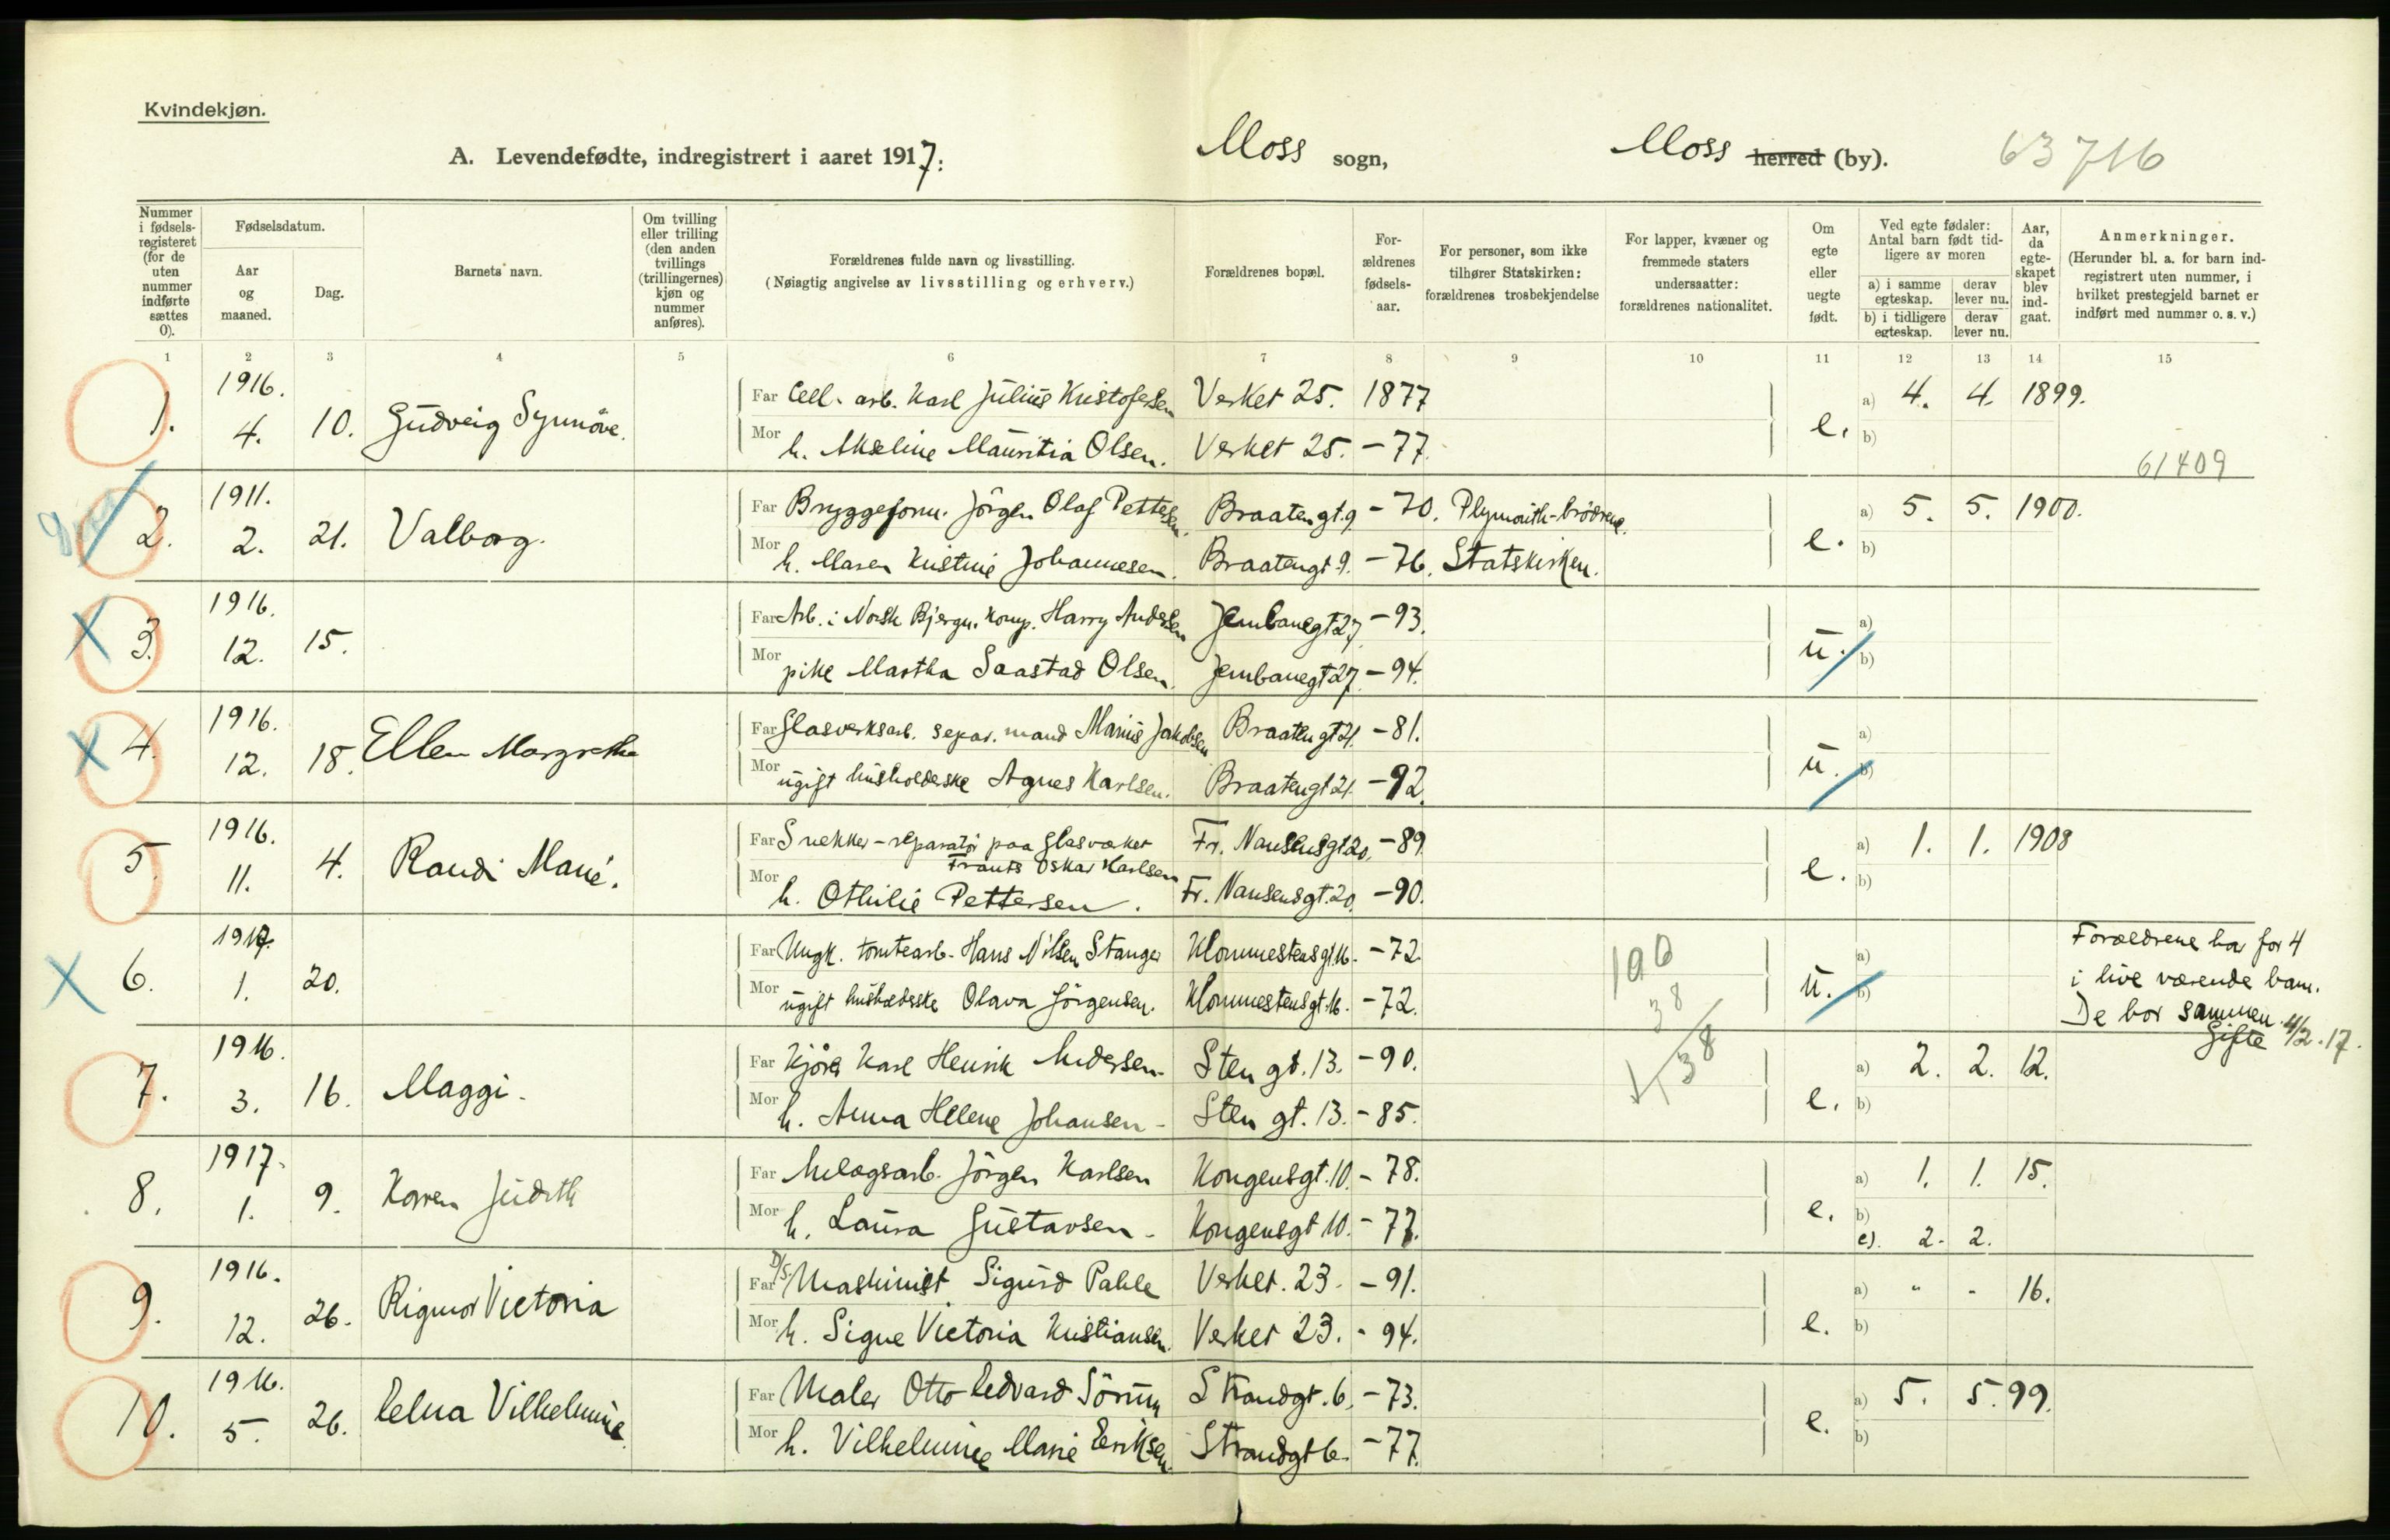 Kvindekjøn.
A. Levendefødte, indregistrert i aaret 1917. Moss sogn, Moss herred (by). 63 716
Nummer i fødselsregisteret (for de uten nummer indførte sættes 0).
Fødselsdatum.
Aar og maaned.
Dag.
Barnets navn.
Om tvilling eller trilling (den anden tvillings (trillingernes) kjøn og nummer anføres).
Forældrenes fulde navn og livsstilling.
(Nøiagtig angivelse av livsstilling og erhverv.)
Forældrenes bopæl.
Forældrenes fødselsaar.
For personer, som ikke tilhører Statskirken: forældrenes trosbekjendelse
For lapper, kvæner og fremmede staters undersaatter: forældrenes nationalitet.
Om egte eller uegte født.
Ved egte fødsler: Antal barn født tidligere av moren
a) i samme egteskap. derav lever nu.
b) i tidligere egteskap. derav lever nu.
Aar, da egteskapet blev indgaat.
Anmerkninger.
(Herunder bl. a. for barn indregistrert uten nummer, i hvilket prestegjeld barnet er indført med nummer o. s. v.)
1 2 3 4 5 6 7 8 9 10 11 12 13 14 15
1. 1916. 4. 10. Gudveig Synnöve.
Far Cell. arb. Karl Julius Kristofersen Verket 25. 1877 e. a) 4. 4. 1899.
Mor h. Akseline Mauritia Olsen. Verket 25. -77. b)
61409
2. 1911. 2. 21. Valborg.
Far Bryggeform. Jörgen Olaf Pettersen. Braatengt. 9 -70. Plymouth-brödrene. e. a) 5. 5. 1900.
Mor h. Maren Kristine Johannesen. Braatengt 9. -76. Statskirken. b)
3. 1916. 12. 15.
Far Arb. i Norsk Bjergn. komp. Harry Andersen Jernbanegt 27. -93. u. a)
Mor pike Martha Saastad Olsen. Jernbanegt 27. -94. b)
4. 1916. 12. 18. Ellen Margrethe
Far Glasverksarb. separ. mand Marius Jakobsen Braatengt 21. -81. u. a)
Mor ugift husholderske Agnes Karlsen. Braatengt 21. -92. b)
5. 1916. 11. 4. Randi Marie.
Far Snekker-reparatör paa Glasverket
Frants Oskar Karlsen Fr. Nansensgt 20. -89. e. a) 1. 1. 1908
Mor h. Othilie Pettersen. Fr. Nansensgt. 20. -90. b)
6. 1917. 1. 20.
Far Ungk. tomtearb. Hans Nilsen Stanger Klommestensgt. 16. -72. u. a)
Mor ugift Olava Jörgensen. Klommestensgt. 16. -72. b)
Forældrene har för 4
i live værende barn.
De bor sammen.
Gifte 4/2.17.
38
38
7. 1916. 3. 16. Maggi.
Far Kjörer Karl Henrik Andersen. Sten gt. 13. -90. e. a) 2. 2. 12.
Mor h. Anna Helene Johansen. Sten gt. 13. -85. b)
8. 1917. 1. 9. Karen Judith
Far Anlægsarb. Jörgen Karlsen Kongensgt. 10. -78. e. a) 1. 1. 15.
Mor h. Laura Gustavsen. Kongensgt 10. -77. b)
c). 2. 2.
9. 1916. 12. 26. Rigmor Victoria
Far D/S Maskinist Sigurd Pahle Verket. 23. -91. e. a) " - 16.
Mor h. Signe Victoria Kristiansen. Verket 23. - 94. b)
10. 1916. 5. 26. Edna Vilhelmine.
Far Maler Otto Edvard Sörum Strandgt. 6. -73. e. a) 5. 5. 99.
Mor h. Vilhelmine Marie Eriksen. Strandgt 6. -77. b)